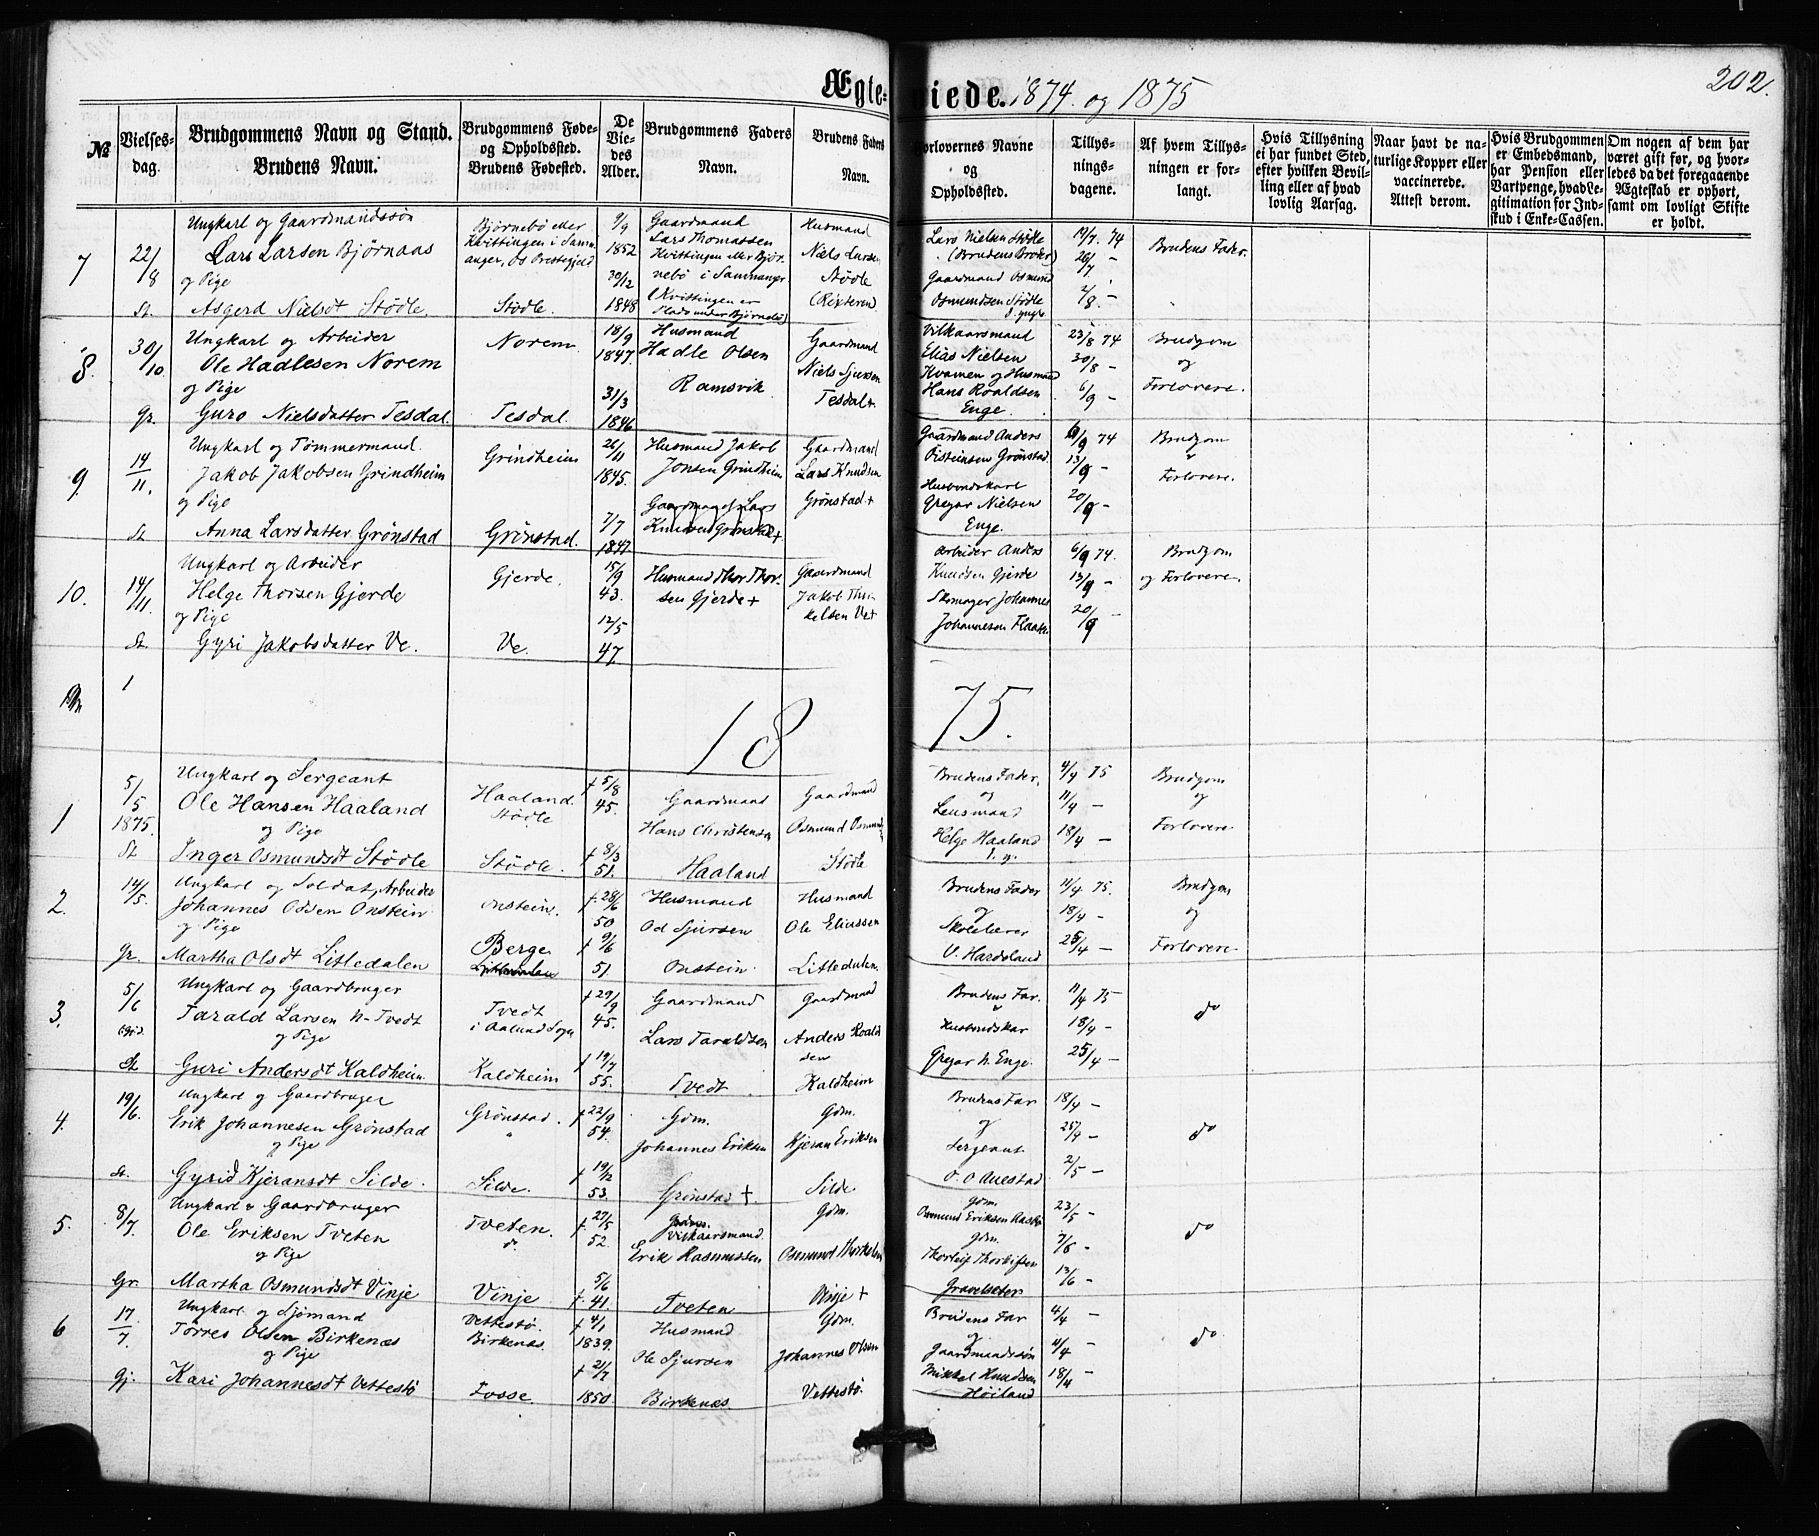 Ægte= viede. 1874. og 1875
202.
№
Vielses-
dag.
Brudgommens Navn og Stand.
Brudens Navn.
Brudgommens Føde-
og Opholdssted.
Brudens Fødested.
De
Vie-
des
Alder.
Brudgommens Faders
Navn.
Brudens Faders
Navn.
Forlovernes Navne
og
Opholdssted.
Tillys-
nings-
dagene.
Af hvem Tillys-
ningen er for-
langt.
Hvis Tillysning
ei har fundet Sted,
efter hvilken Bevil-
ling eller af hvad
lovlig Aarsag.
Naar havt de na-
turlige Kopper eller
vaccinerede.
Attest derom.
Hvis Brudgommen
er Embedsmand,
har Pension eller
Vartpenge, hvad Le-
gitimation for Ind-
skud i Enke-Cassen.
Om nogen af dem har
været gift før, og hvor-
ledes da det foregaaende
Ægteskab er ophørt,
samt om lovligt Skifte
er holdt.
7
22/8
St.
Ungkarl og Gaardmandssøn
Lars Larsen Bjørnaas
og Pige
Asgerd Nielsdt Stødle
Bjørnebø eller
Kvittingen i Samn-
anger, Os Prestegjeld
Stødle.
9/9
1852
30/12
1848
Gaardmand
Lars Thomassen
Kvittingen eller Bjør-
nebø i Samnanger
(Kvittingen er
Plads under Bjørnebø)
Husmand
Niels Larsen
Stødle
(Rixteren)
Lars Nielsen Stødle
(Brudens Broder)
Gaardmand Osmund
Osmundsen Stødle
d. yngre
19/7. 74
26/7 -
2/8. -
Brudens Fader.
8.
30/10.
Gr.
Ungkarl og Arbeider
Ole Hadlesen Norem
og Pige
Guro Nielsdatter Tesdal.
Norem
Tesdal.
18/9
1847.
31/3
1846
Husmand
Hadle Olsen
Ramsvik
Gaardmand
Niels Sjursen
Tesdal+
Vilkaarsmand
Elias Nielsen
Kvamen og Husmand
Hans Roaldsen
Enge.
23/8 74
30/8 -
6/9 -
Brudgom
og
Forlovere.
9.
14/11.
St
Ungkarl og Tømmermand.
Jakob Jakobsen Grindheim
og Pige
Anna Larsdatter Grønstad
Grindheim
Grønstad.
26/11
1845.
7/7
1847
Husmand Jakob
Jonsen Grindheim
Gaardmand Lars
Knudsen Grønstad+
Gaardmand
Lars Knudsen
Grønstad+
Gaardmand Anders
Oisteinsen Grønstad.
Husbondskarl
Gregar Nielsen
Enge.
6/9 74
13/9 -
20/9 -
Brudgom
"
Forlovere.
10.
14/11.
St.
Ungkarl og Arbeider
Helge Thorsen Gjerde
og Pige
Gyri Jakobsdatter Ve.
Gjerde.
Ve.
15/9
43.
12/5
47.
Husmand Thor Thor-
sen Gjerde+
Gaardmand
Jakob Thor-
kelsen Ve+
Arbeider Anders
Knudsen Gjerde
Skomager Johannes
Johannesen Flaate
6/9 74.
13/9 -
20/9
Brudgom
og Forlovere.
1
18 75.
1
5/5
1875.
St
Ungkarl og Sergeant
Ole Hansen Haaland
og Pige
Inger Osmundsdt Stødle
Haaland
Stødle
Stødle.
+ 5/8
45.
+ 8/3
51.
Gaardmand
Hans Christensen
Haaland
Gaardmand
Osmund Osmunds
Stødle
Brudens Fader,
og
Lensmand
Helge Haaland
4/4 75
11/4 -
18/4 -
Brudgom
og
Forlovere
2.
14/5.
Gr.
Ungkarl og Soldat, Arbeider
Johannes Odsen Onstein.
og Pige
Martha Olsdt Litledalen
Onstein.
Berge
Litledalen
+ 28/6
50
+ 9/6
51.
Husmand
Od Sjursen
Onstein.
Husmand
Ole Eliassen
Litledalen.
Brudens Fader
og
Skolelærer
V. Hardeland
11/4 75.
18/4 -
25/4 -
Brudgom
og
Forlovere
3.
5/6
St
Ungkarl og Gaardbruger
Tarald Larsen N-Tvedt
og Pige
Guri Andersdt Kaldheim.
Tvedt
i Aalund Sogn
Kaldheim
+ 29/9
45.
+ 19/7
55.
Gaardmand
Lars Taraldsen
Tvedt
Gaardmand
Anders Roald-
sen
Kaldheim
Brudens Far.
"
Husbondskar
Gregar N. Enge.
11/4 75
18/4 -
25/4 -
do
4.
19/6.
St.
Ungkarl og Gaardbruger
Erik Johannesen Grønstad
og Pige
Gyrid Kjeransdt Silde.
Grønstad.
"
Silde.
+ 22/9
54.
+ 19/12
53.
Gdm.
Johannes Eriksen
Grønstad +
Gdm.
Kjeran Eriksen
Silde
Brudens Far
og
Sergeant
O. O Auestad
18/4 -
25/4 -
2/5 -
do
5.
8/7.
Gr.
Ungkarl & Gaardbruger
Ole Eriksen Tveten
og Pige
Martha Osmundsdt Vinje
Tveten.
do
Vinje.
+ 27/5
52.
5/6
+ 41.
Vilkaarsmand.
Erik Rasmussen
Tveten
Gdm.
Osmund Thorkelsen
Vinje +
Gdm.
Osmund Eriksen
Gdm.
Thorleif Thorleifsen
Gravelseter
23/5 -
7/6 -
13/6 -
do
6
17/7.
Gj.
Ungkarl og Sjømand
Torres Olsen Birkenæs
og Pige
Kari Johannesdt Vettestø
Vettestø.
Birkenæs.
Fosse.
+ 4/1
1839.
+ 21/7
1850
Husmand
Ole Sjursen
Birkenæs.
Gdm.
Johannes Olsen
Vettestø.
Brudens Far
og
Gaardmandssøn
Mikkel Knudsen
Høiland
4/4 -
11/4 -
18/4
do